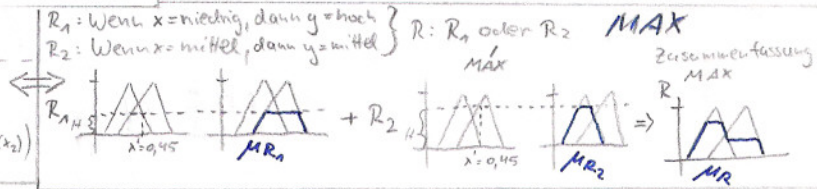 R₁: Wenn x = niedrig, dann y = hoch
R₂: Wenn x = mittel, dann y = mittel
} R: R₁ oder R₂
MAX
MAX
Zusammenfassung
MAX
R
⟺
R₁
H {
+ R₂
H {
⇒
x₂))
x'=0,45
x'=0,45
μR₁
μR₂
μR